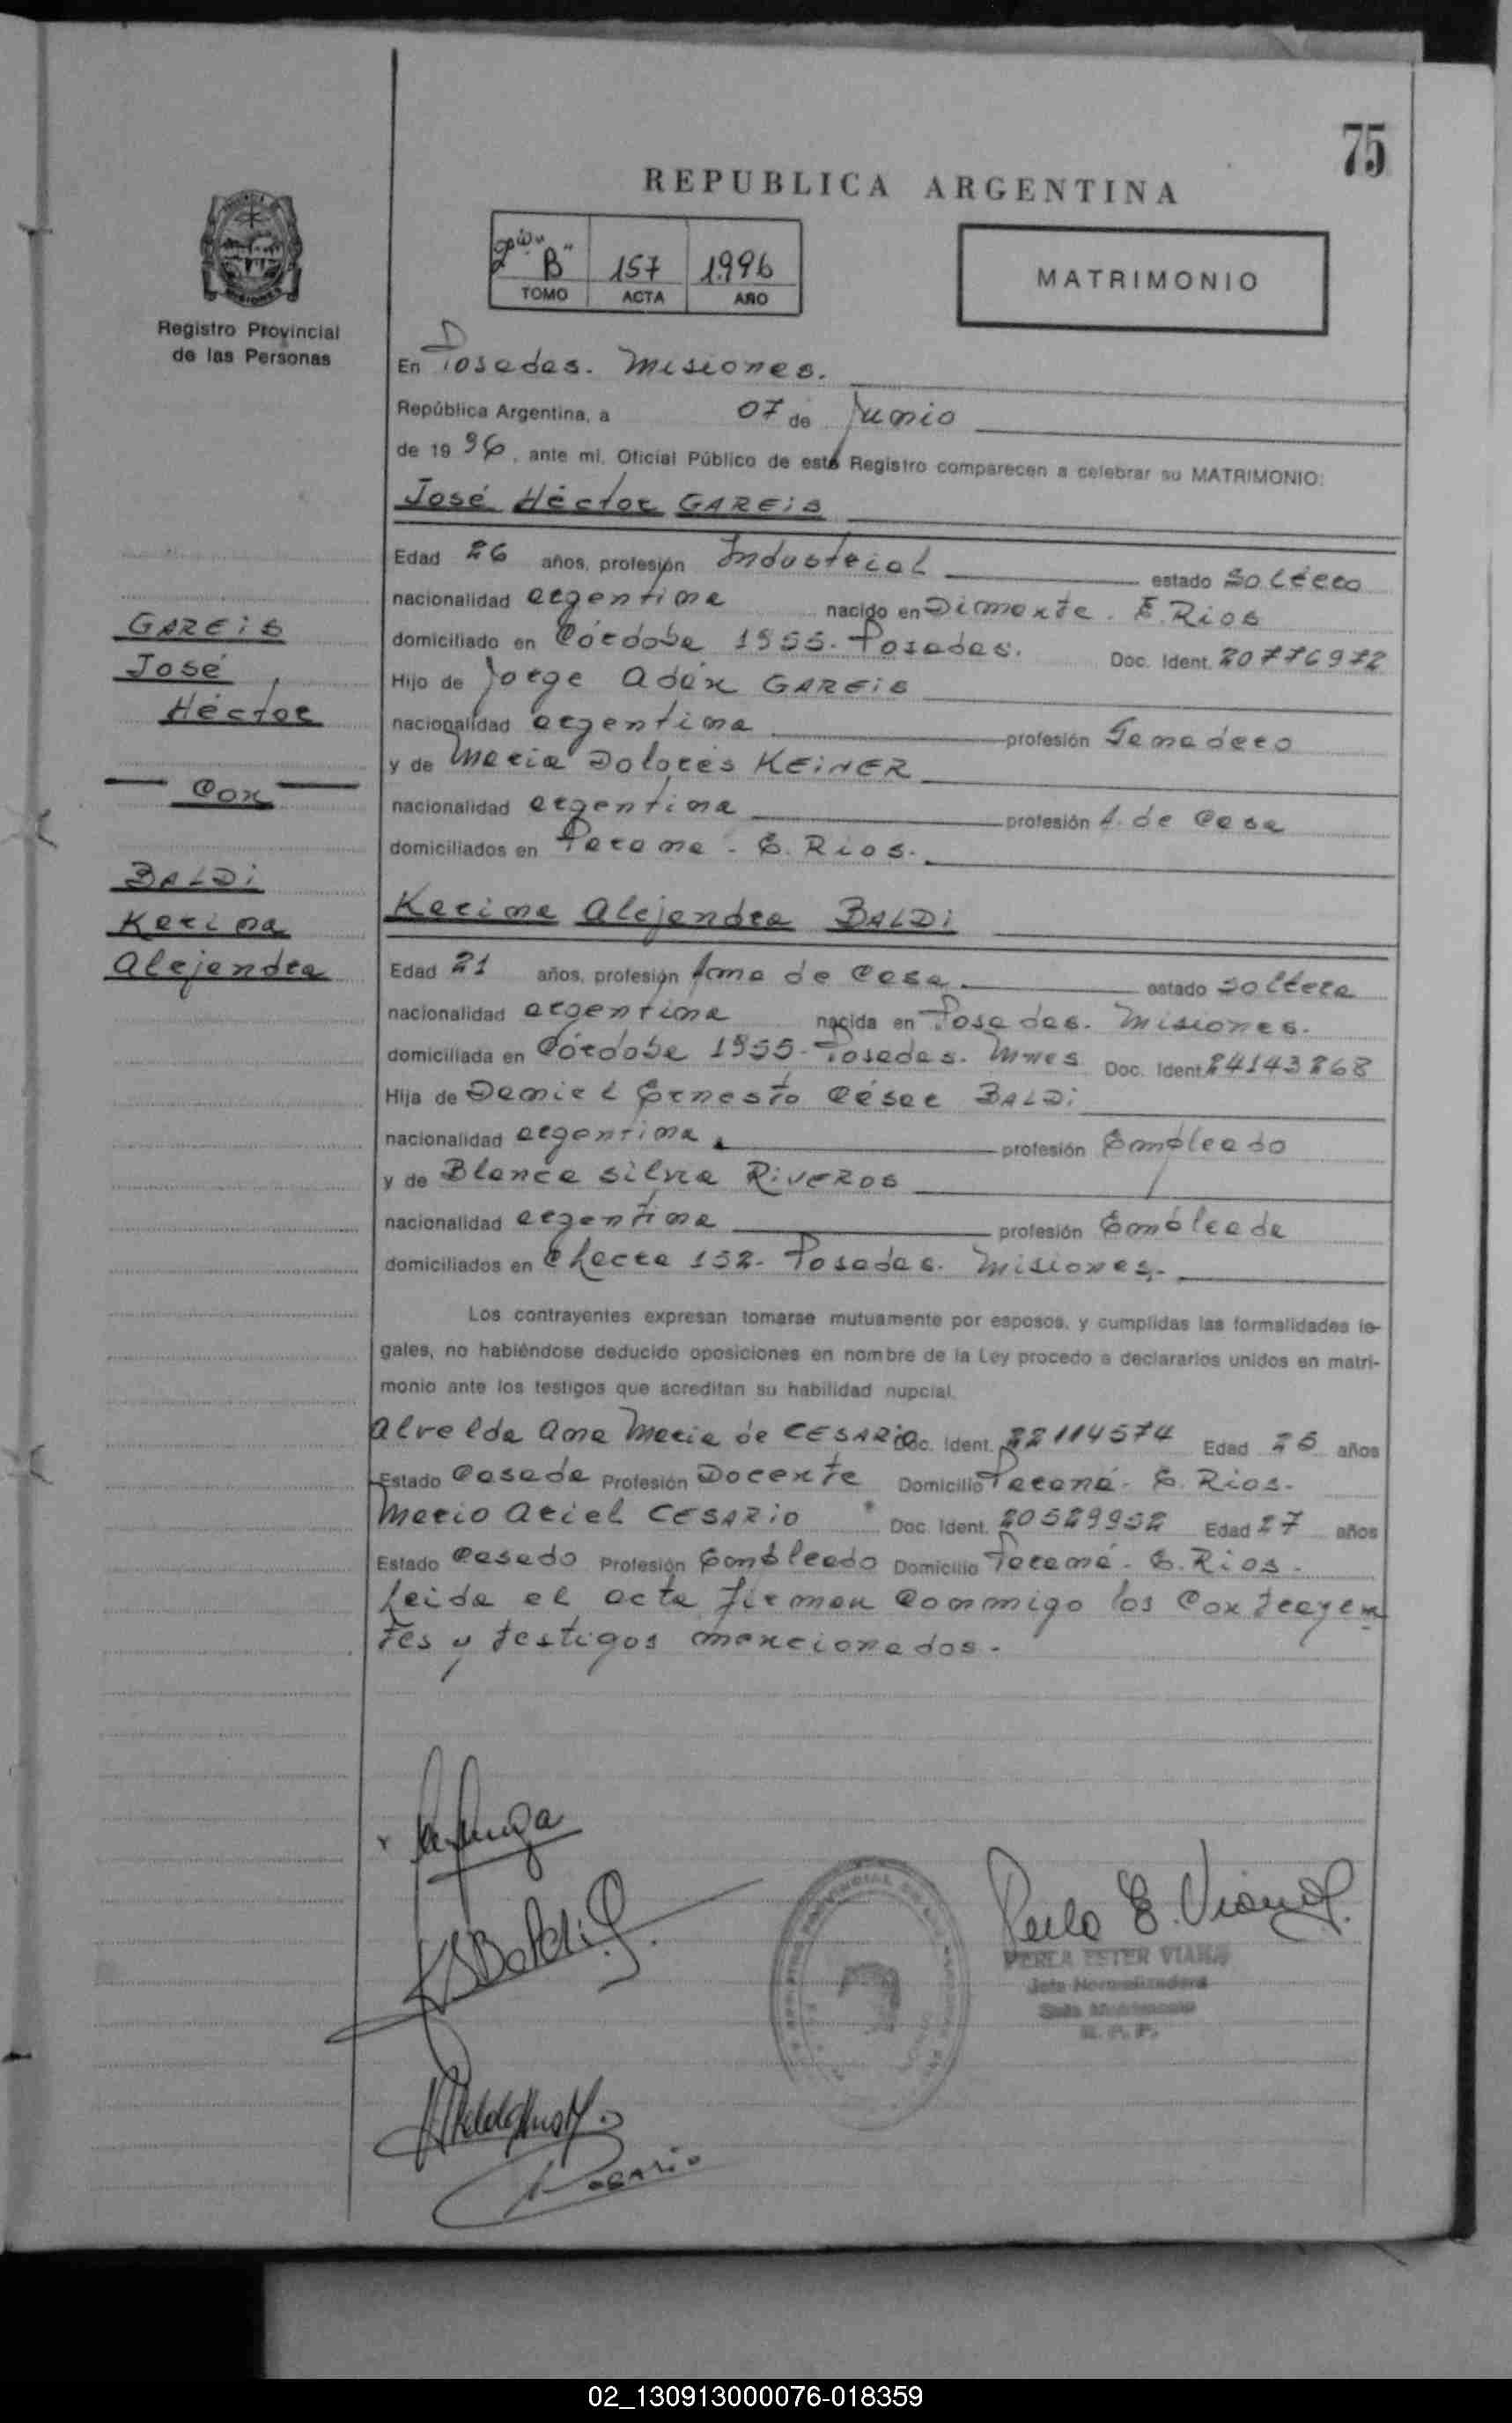 75
REPUBLICA ARGENTINA
"B" 157 1996
TOMO ACTA AÑO
MATRIMONIO
Registro Provincial
de las Personas
En Posadas. Misiones.
República Argentina, a 07 de Junio
de 1996, ante mi, Oficial Público de este Registro comparecen a celebrar su MATRIMONIO:
José Héctor GAREiS
Edad 26 años, profesión Industrial estado soltero
nacionalidad argentina nacido en Diamante. E. Rios
domiciliado en Córdoba 1955. Posadas. Doc. Ident. 20776972
Hijo de Jorge Adán GAREiS
nacionalidad argentina profesión Ganadero
y de Maria Dolores KEiNER
nacionalidad argentina profesión A. de Casa
domiciliados en Parana - E. Rios.
GAREiS
José
Héctor
Con
BALDi
Karina
Alejandra
Karina Alejandra BALDi
Edad 21 años, profesión Ama de Casa estado soltera
nacionalidad argentina nacida en Posadas. Misiones.
domiciliada en Córdoba 1955- Posadas. Mnes Doc. Ident. 24143268
Hija de Daniel Ernesto César BALDi
nacionalidad argentina profesión Empleado
y de Blanca Silvia RiVEROS
nacionalidad argentina profesión Empleada
domiciliados en Chacra 152- Posadas. Misiones.-
Los contrayentes expresan tomarse mutuamente por esposos, y cumplidas las formalidades le-
gales, no habiéndose deducido oposiciones en nombre de la Ley procedo a declararlos unidos en matri-
monio ante los testigos que acreditan su habilidad nupcial.
Alvelda Ana Maria de CESARiO Doc. Ident. 22114574 Edad 25 años
Estado Casada Profesión Docente Domicilio Paraná - E. Rios.
Mario Ariel CESARiO Doc. Ident. 20529952 Edad 27 años
Estado Casado Profesión Empleado Domicilio Paraná - E. Rios.
Leida el acta firman conmigo los contrayen
tes y testigos mencionados.
KSBaldi
Perla E. Viana
PERLA ESTER VIANA
Jefa Normalizadora
R. P. P.
Cesario
02_130913000076-018359